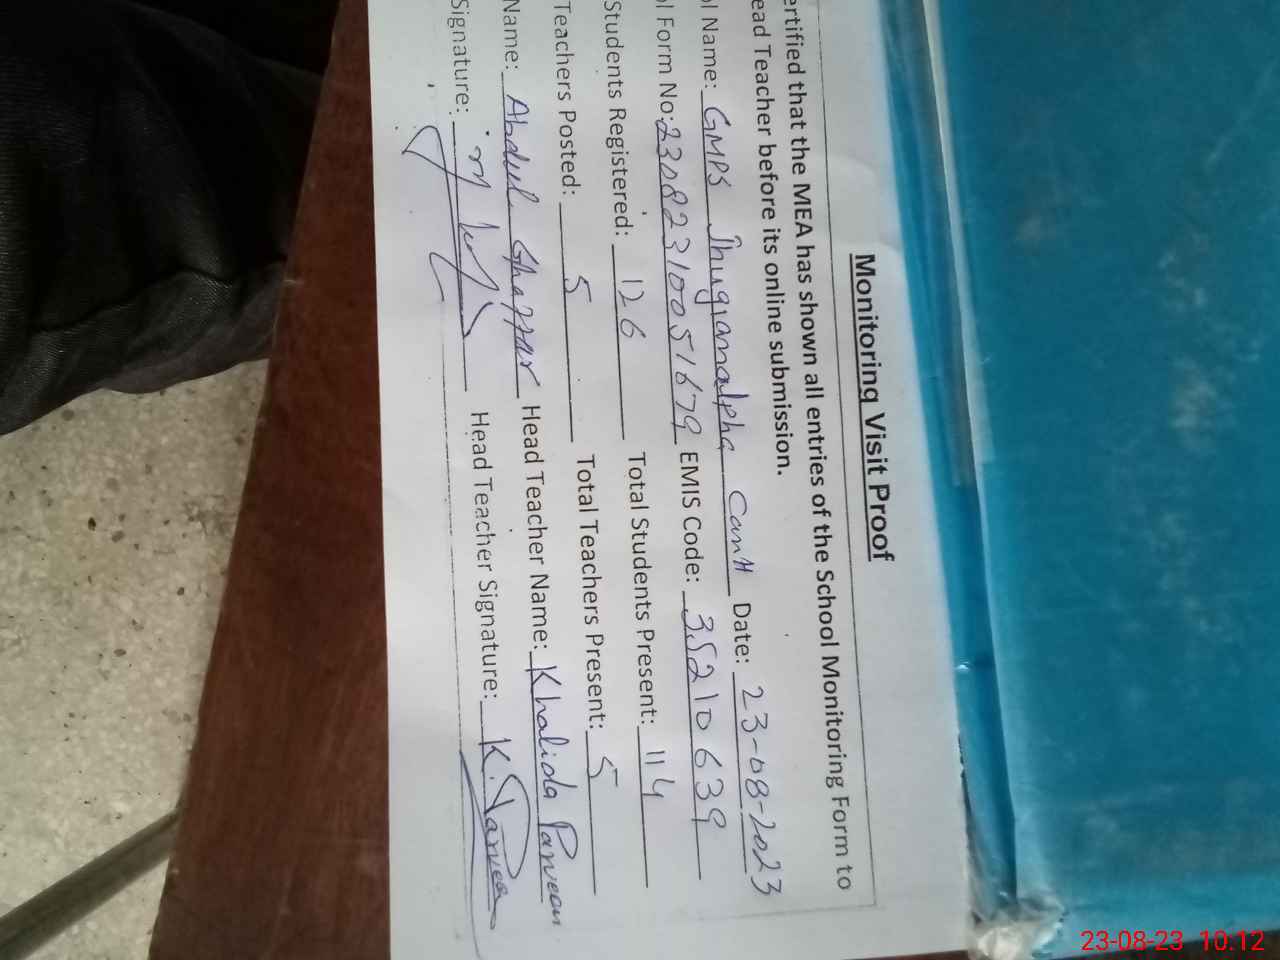 Monitoring Visit Proof
ertified that the MEA has shown all entries of the School Monitoring Form to
ead Teacher before its online submission.
ol Name: GMPS Jhugianalpha Cantt Date: 23-08-2023
ol Form No: 23082310051679 EMIS Code: 35210639
Students Registered: 126 Total Students Present: 114
Teachers Posted: 5 Total Teachers Present: 5
Name: Abdul Ghaffar Head Teacher Name: Khalida Parveen
Signature: Head Teacher Signature: K. Parveen
23-08-23 10:12